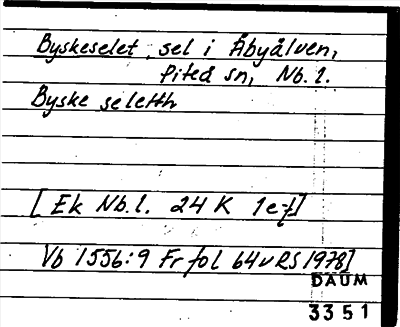 Byskeselet, sel i Åbyälven,
Piteå sn, Nb. l.
Byske seletth
[Ek Nb.l. 24 K 1e-f]
Vb 1556:9 Fr fol 64v RS 1978]
DAUM
3351